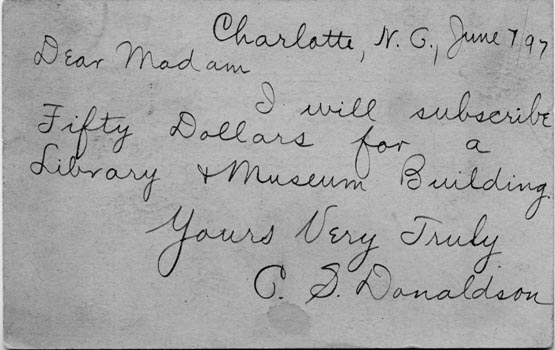 Charlotte, N. C., June 7/97
Dear Madam
I will subscribe
Fifty Dollars for a
Library & Museum Building.
Yours Very Truly
C. S. Donaldson